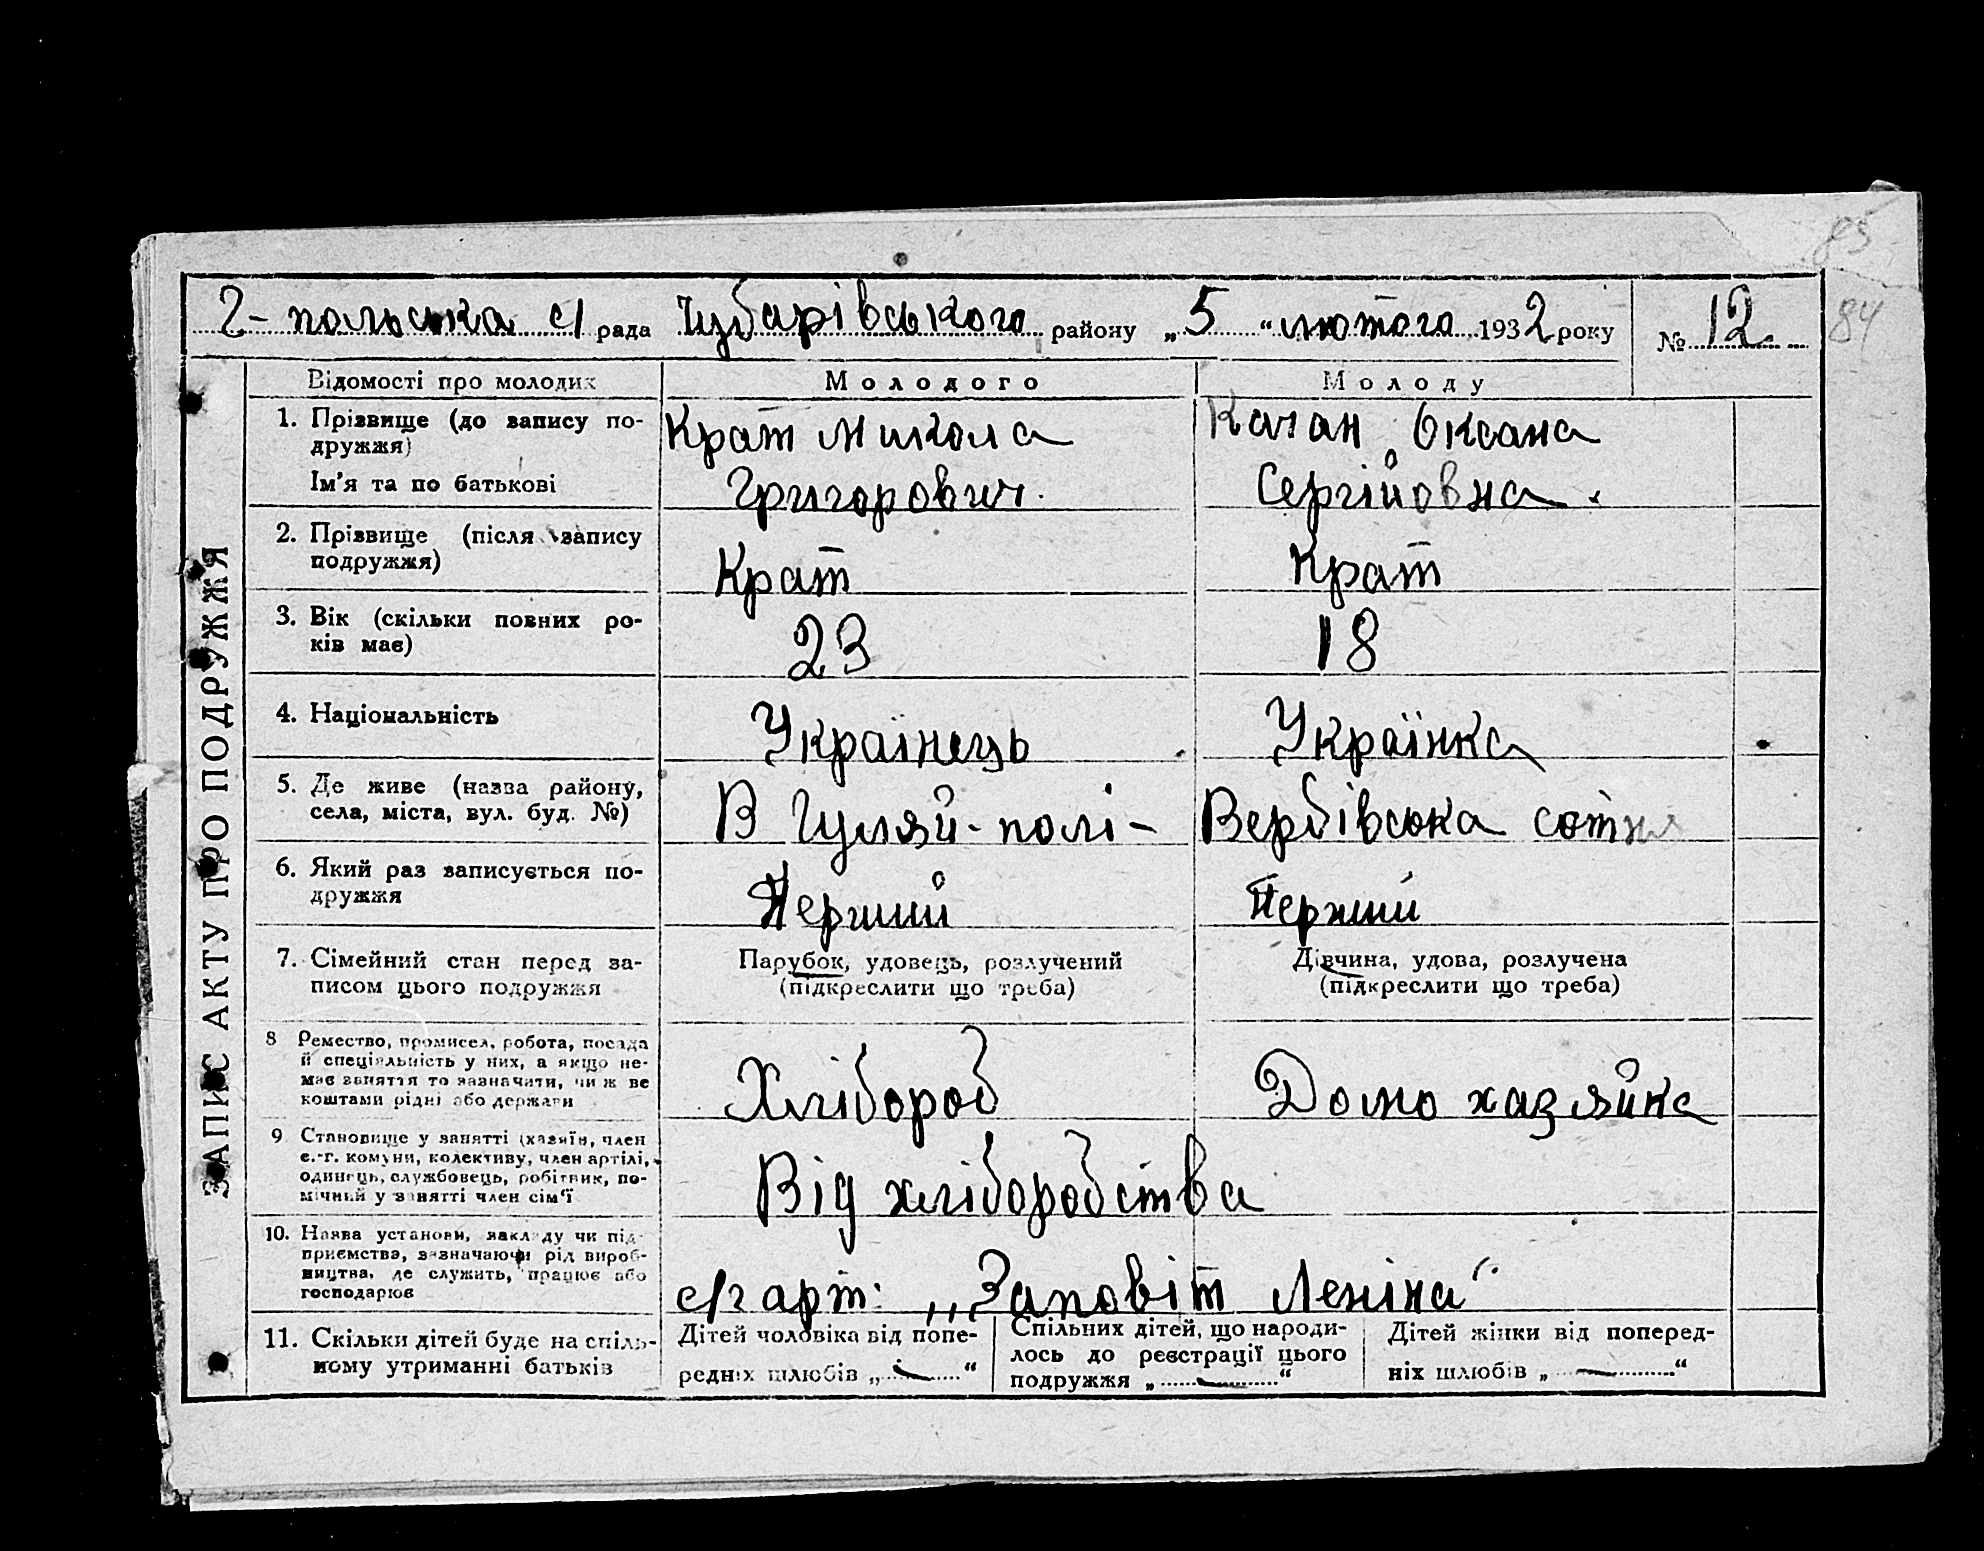 83
84
Г-польська с/ рада Чубарівського району „5“ лютого 1932 року № 12.
ЗАПИС АКТУ ПРО ПОДРУЖЖЯ
Відомості про молодих Молодого Молоду
1. Прізвище (до запису по-
дружжя)
Ім'я та по батькові
Крат Микола
Григорович.
Качан Оксана
Сергійовна.
2. Прізвище (після запису
подружжя)
Крат
Крат
3. Вік (скільки повних ро-
ків має)
23
18
4. Національність
Українець
Українка
5. Де живе (назва району,
села, міста, вул. буд. №)
В Гуляй-полі-
Вербівська сотня
6. Який раз записується по-
дружжя
Перший
Перший
7. Сімейний стан перед за-
писом цього подружжя
Парубок, удовець, розлучений
(підкреслити що треба)
Дівчина, удова, розлучена
(підкреслити що треба)
8 Ремество, промисел, робота, посада
й спеціяльність у них, а якщо не-
має заняття то зазначити, чи ж ве
коштами рідні або держави
Хлібороб
Домо хазяйка
9 Становище у занятті (хазяїн, член
с.-г. комуни, колективу, член артілі,
одинець, службовець, робітник, по-
мічний у занятті член сім'ї
Від хліборобства
10. Назва установи, закладу чи під-
приємства, зазначаючи рід вироб-
ництва, де служить, працює або
господарює
с/г арт: „Заповіт Леніна“.
11. Скільки дітей буде на спіль-
ному утриманні батьків
Дітей чоловіка від попе-
редніх шлюбів „ — “
Спільних дітей, що народи-
лось до реєстрації цього
подружжя „ — “
Дітей жінки від поперед-
ніх шлюбів „ — “